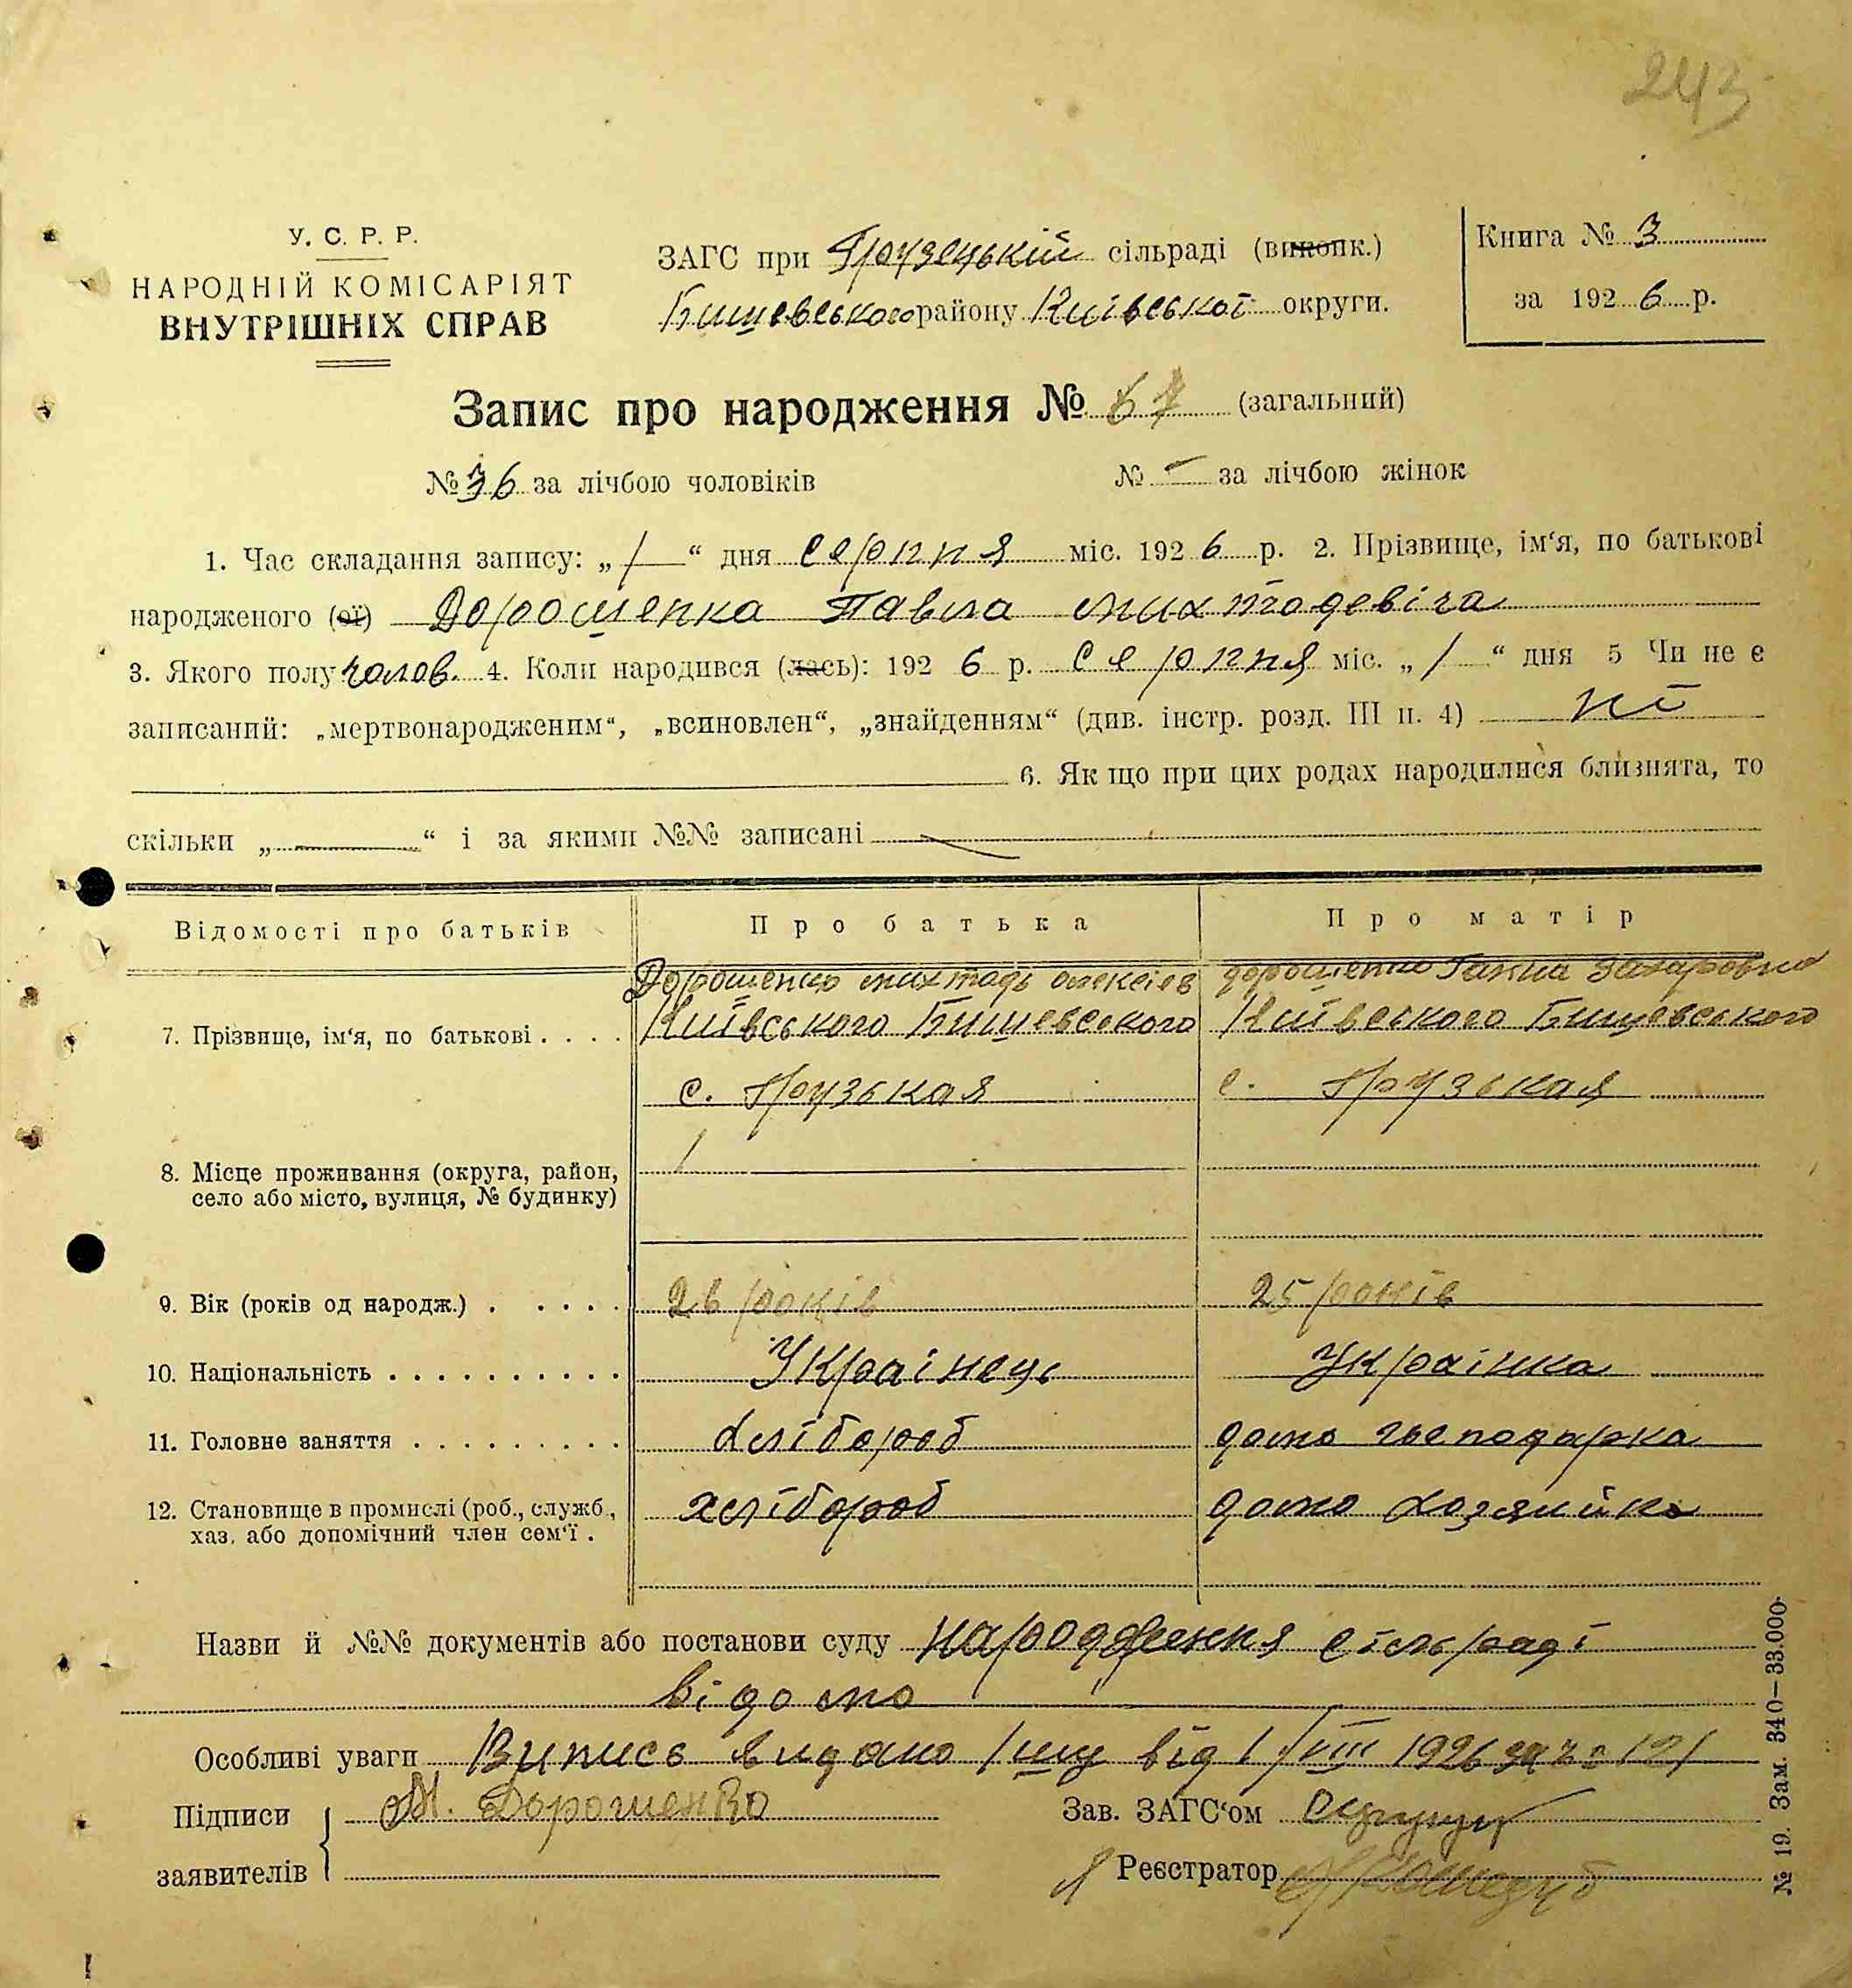 243
У. С. Р. Р.
НАРОДНІЙ КОМІСАРІЯТ
ВНУТРІШНІХ СПРАВ
ЗАГС при Грузецькій сільраді (виконк.)
Бишевського району Київської округи.
Книга № 3
за 1926 р.
Запис про народження № 67 (загальний)
№ 36 за лічбою чоловіків № — за лічбою жінок
1. Час складання запису: „1“ дня серпня міс. 1926 р. 2. Прізвище, ім‘я, по батькові
народженого (ої) Дорошенка Павла Михтодевіча
3. Якого полу чолов. 4. Коли народився (лась): 1926 р. Серпня міс. „1“ дня 5 Чи не є
записаний: „мертвонародженим“, „всиновлен“, „знайденням“ (див. інстр. розд. III п. 4) ні
6. Як що при цих родах народилися близнята, то
скільки „——“ і за якими №№ записані
Відомості про батьків Про батька Про матір
Дорошенко Михтодь Олексіев дорошенко Ганна Захаровна
7. Прізвище, ім‘я, по батькові . . . . Київського Бишевського Київського Бишевського
с. Грузькая с. Грузькая
8. Місце проживання (округа, район,
село або місто, вулиця, № будинку)
9. Вік (років од народж.) . . . . . 26 років 25 років
10. Національність . . . . . . . . . . Українець Українка
11. Головне заняття . . . . . . . . . хлібороб домо господарка
12. Становище в промислі (роб., служб.,
хаз. або допомічний член сем‘ї . хлібороб домо хозяйка
Назви й №№ документів або постанови суду народження сільраді
відомо
Особливі уваги Випись видано 1шу від 1/VIII 1926 за № 121
Підписи
заявителів
М. Дорошенко
Зав. ЗАГС‘ом
Реєстратор
№ 19. Зам. 340—33.000